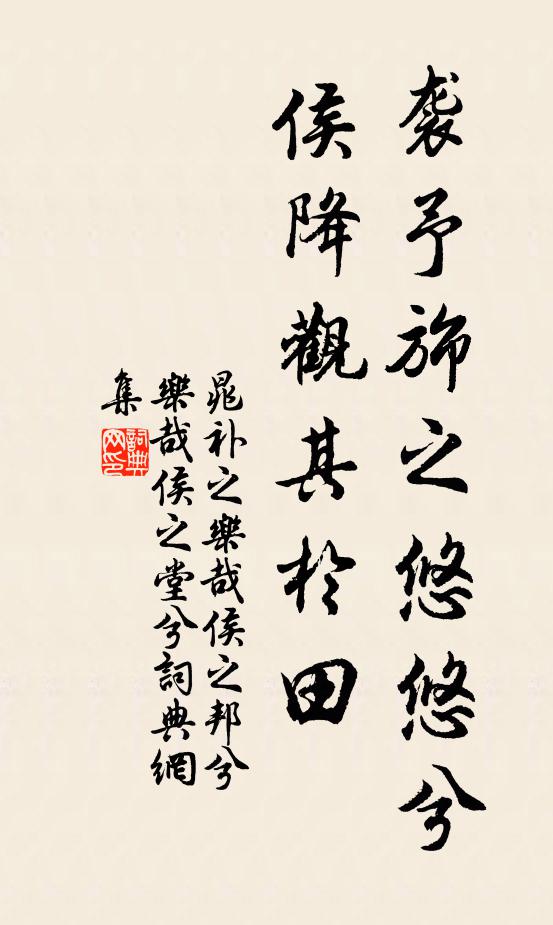 袭予旆之悠悠兮
侯降觀其於田
晁补之樂哉侯之邦兮
樂哉侯之堂兮詞典網
集
詞典
网印